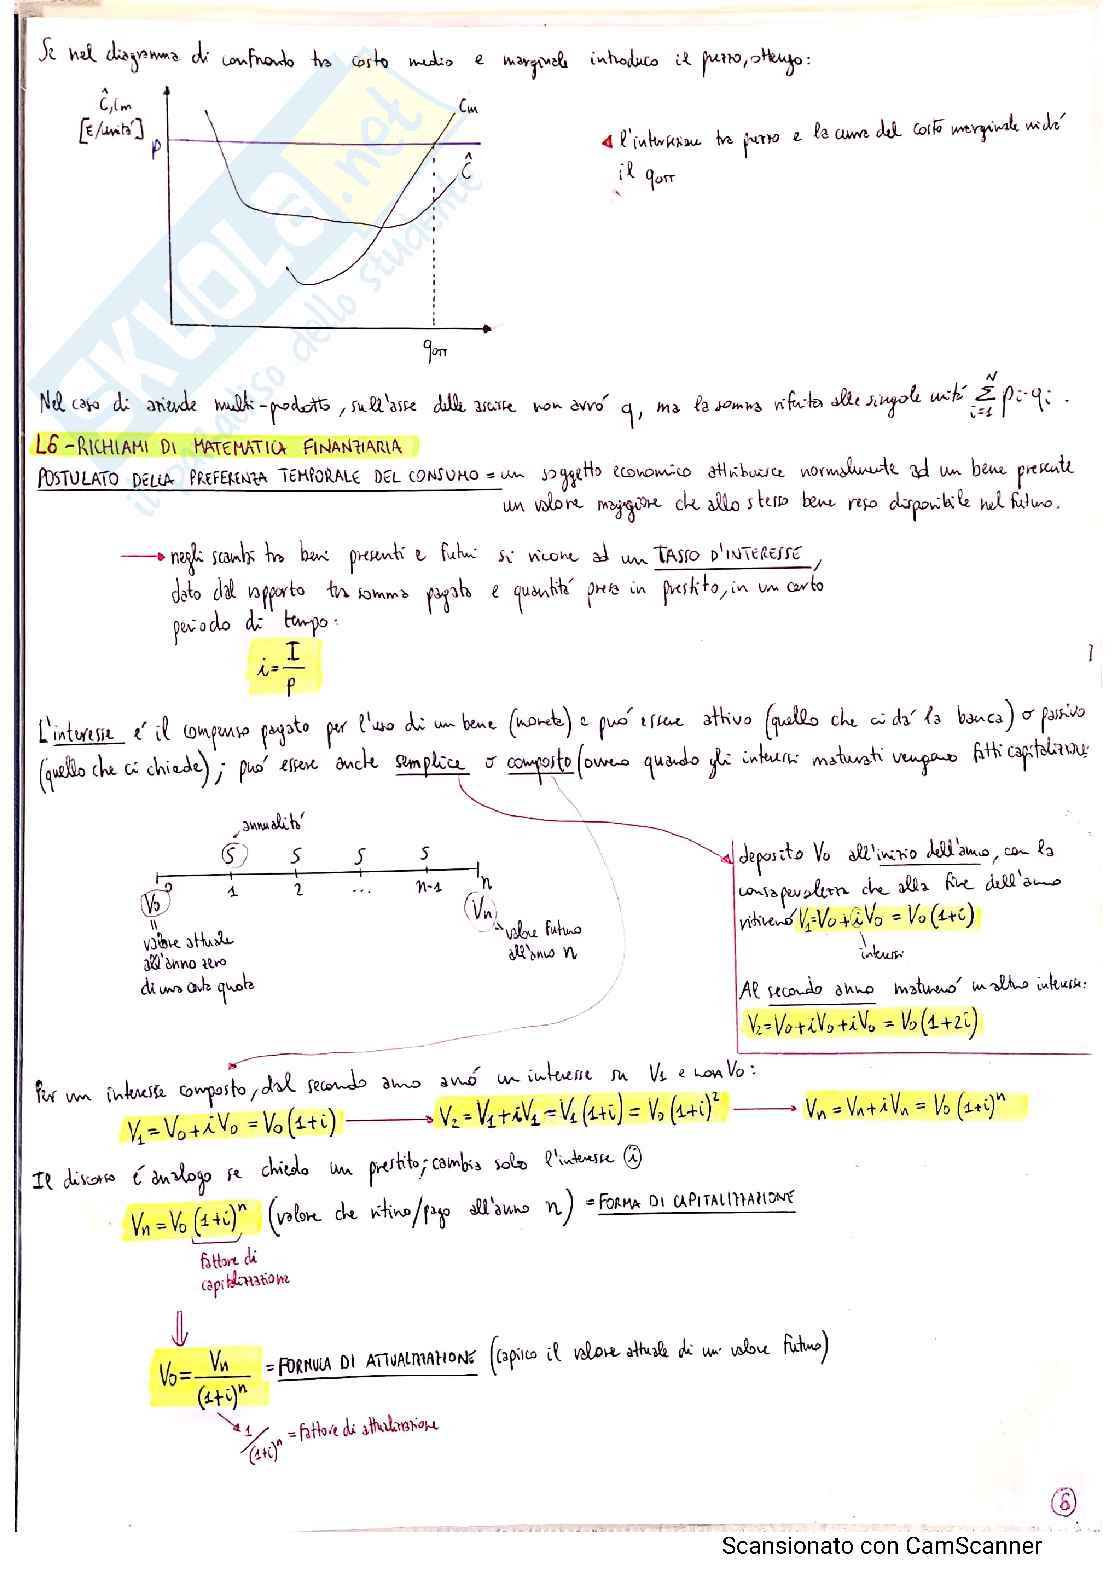 Se nel diagramma di confronto tra costo medio e marginale introduco il prezzo, ottengo:
Ĉ, Cm
[€/unitá]
P
Cm
Ĉ
qott
l'intersezione tra prezzo e la curva del costo marginale mi dá
il qott
Nel caso di aziende multi-prodotto, sull'asse delle ascisse non avró q, ma la somma riferita alle singole unitá ∑ i=1 N pi·qi.
L6 - RICHIAMI DI MATEMATICA FINANZIARIA
POSTULATO DELLA PREFERENZA TEMPORALE DEL CONSUMO = un soggetto economico attribuisce normalmente ad un bene presente
un valore maggiore che allo stesso bene reso disponibile nel futuro.
negli scambi tra beni presenti e futuri si ricorre ad un TASSO D'INTERESSE,
dato dal rapporto tra somma pagata e quantitá presa in prestito, in un certo
periodo di tempo:
i = I/P
L'interesse é il compenso pagato per l'uso di un bene (moneta) e puó essere attivo (quello che ci dá la banca) o passivo
(quello che ci chiede); puó essere anche semplice o composto (ovvero quando gli interessi maturati vengano fatti capitalizzare
annualitá
S S S S
0 1 2 ... n-1 n
V0
Vn
valore attuale
all'anno zero
di una certa quota
valore futuro
all'anno n
deposito V0 all'inizio dell'anno, con la
consapevolezza che alla fine dell'anno
ritireró V1=V0+iV0 = V0(1+i)
interessi
Al secondo anno matureró un altro interesse:
V2=V0+iV0+iV0 = V0(1+2i)
Per un interesse composto, dal secondo anno avró un interesse su V1 e non V0:
V1=V0+iV0=V0(1+i) → V2=V1+iV1=V1(1+i)=V0(1+i)² → Vn=Vn+iVn=V0(1+i)ⁿ
Il discorso é analogo se chiedo un prestito; cambia solo l'interesse i
Vn=V0(1+i)ⁿ (valore che ritiro/pago all'anno n) = FORMA DI CAPITALIZZAZIONE
fattore di
capitalizzazione
V0= Vn/(1+i)ⁿ = FORMULA DI ATTUALIZZAZIONE (capisco il valore attuale di un valore futuro)
1/(1+i)ⁿ = fattore di attualizzazione
6
Scansionato con CamScanner
SKUOLA.net
il paradiso dello studente